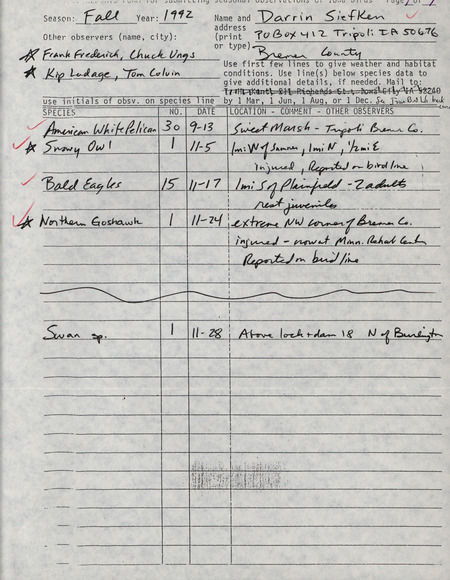 Season: Fall Year: 1992 Name and Darrin Siefken
address PO Box 412 Tripoli IA 50676
Other observers (name, city): (print
or type) Bremer County
Frank Frederick, Chuck Ungs
Kip Ludage, Tom Colvin
Use first few lines to give weather and habitat
conditions. Use line(s) below species data to
give additional details, if needed. Mail to:
use initials of obsv. on species line by 1 Mar, 1 Jun, 1 Aug, or 1 Dec.
SPECIES NO. DATE LOCATION - COMMENT - OTHER OBSERVERS
American White Pelican 30 9-13 Sweet Marsh - Tripoli Bremer Co.
Snowy Owl 1 11-5 1mi W of Sumner, 1mi N, 1/2mi E
injured, Reported on birdline
Bald Eagles 15 11-17 1mi S of Plainfield - 2 adults
rest juveniles
Northern Goshawk 1 11-24 extreme NW corner of Bremer Co.
injured - now at Minn. Rehab Center
Reported on birdline
Swan sp. 1 11-28 Above lock + dam 18 N of Burlington